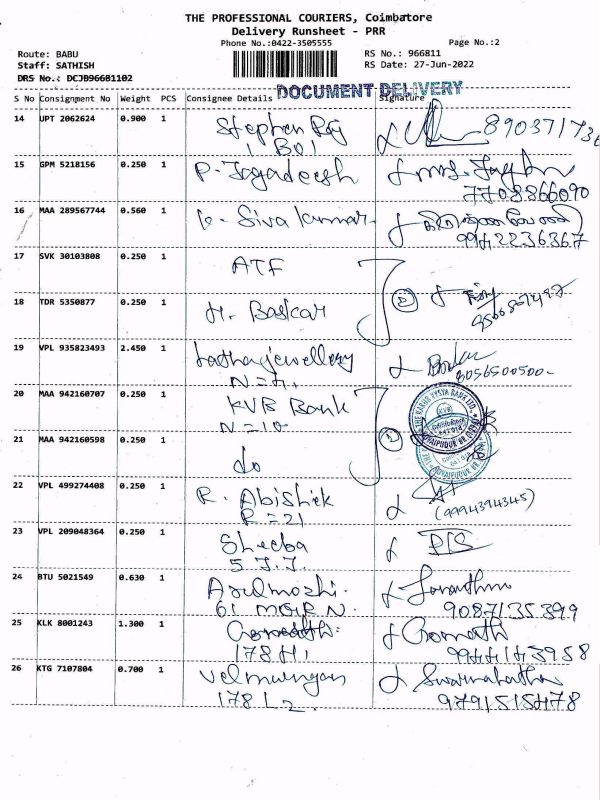 THE PROFESSIONAL COURIERS, Coimbatore
Delivery Runsheet - PRR
Phone No.:0422-3505555
Page No.:2
Route: BABU
Staff: SATHISH
DRS No.: DCJB96681102
RS No.: 966811
RS Date: 27-Jun-2022
DOCUMENT DELIVERY
S No Consignment No Weight PCS Consignee Details Signature
14 UPT 2062624 0.900 1 Stephen Raj
15 GPM 5218156 0.250 1 P. Jagadeesh
7708866090
16 MAA 289567744 0.560 1 K. Siva Kumar.
9942236367
17 SVK 30103808 0.250 1 ATF
18 TDR 5350877 0.250 1 H. Baskar
19 VPL 935823493 2.450 1
8056500500-
20 MAA 942160707 0.250 1 KVB Bank
N=10
THE KARUR VYSYA BANK LTD.
KVB
21 MAA 942160598 0.250 1 do
22 VPL 499274408 0.250 1 R. Abishek
R=21
(9994394345)
23 VPL 209048364 0.250 1 Sheeba
5 J.J.
24 BTU 5021549 0.630 1 Arulmozhi.
61 MGR.N.
9087135399
25 KLK 8001243 1.300 1 Gomathi. Gomathi
178 H1 9944143958
26 KTG 7107804 0.700 1 Velmurugan
178 L2 9791515478